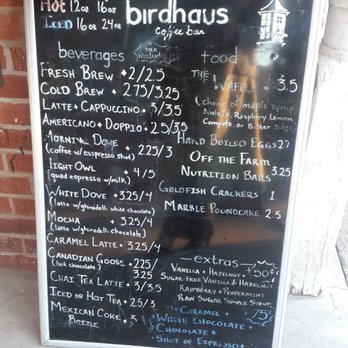 Hot 12oz 16oz
Iced 16oz 24oz
birdhaus
coffee bar
beverages
tax
food
Fresh Brew • 2/2.5
Cold Brew • 2.75/3.25
Latte + Cappuccino • 3/3.5
Americano + Doppio • 2.5/3.5
Morning Dove
(coffee w/ espresso shot) • 2.25/3
Night Owl • 4/5
(quad espresso w/milk)
White Dove • 3.25/4
(latte w/ghiradelli white chocolate)
Mocha • 3.25/4
(latte w/ghiradelli chocolate)
Caramel Latte • 3.25/4
Canadian Goose • 2.25/
(hot chocolate) 3.25
Chai Tea Latte • 3/3.5
Iced or Hot Tea • 2.5/3
Mexican Coke • 3
Bottle
The
Waffle • 3.5
(choice of maple syrup
Nutella, Raspberry Lemon
Compote, or Butter
Hard Boiled Eggs
Off the Farm
Nutrition Bars 3.25
Goldfish Crackers 1
Marble Poundcake 2.5
extras
Vanilla • Hazelnut • +50¢
Sugar-Free Vanilla & Hazelnut
Raspberry • Peppermint
Raw Sugar Simple Syrup
Caramel • +75¢
White Chocolate •
Chocolate •
Shot of Espresso